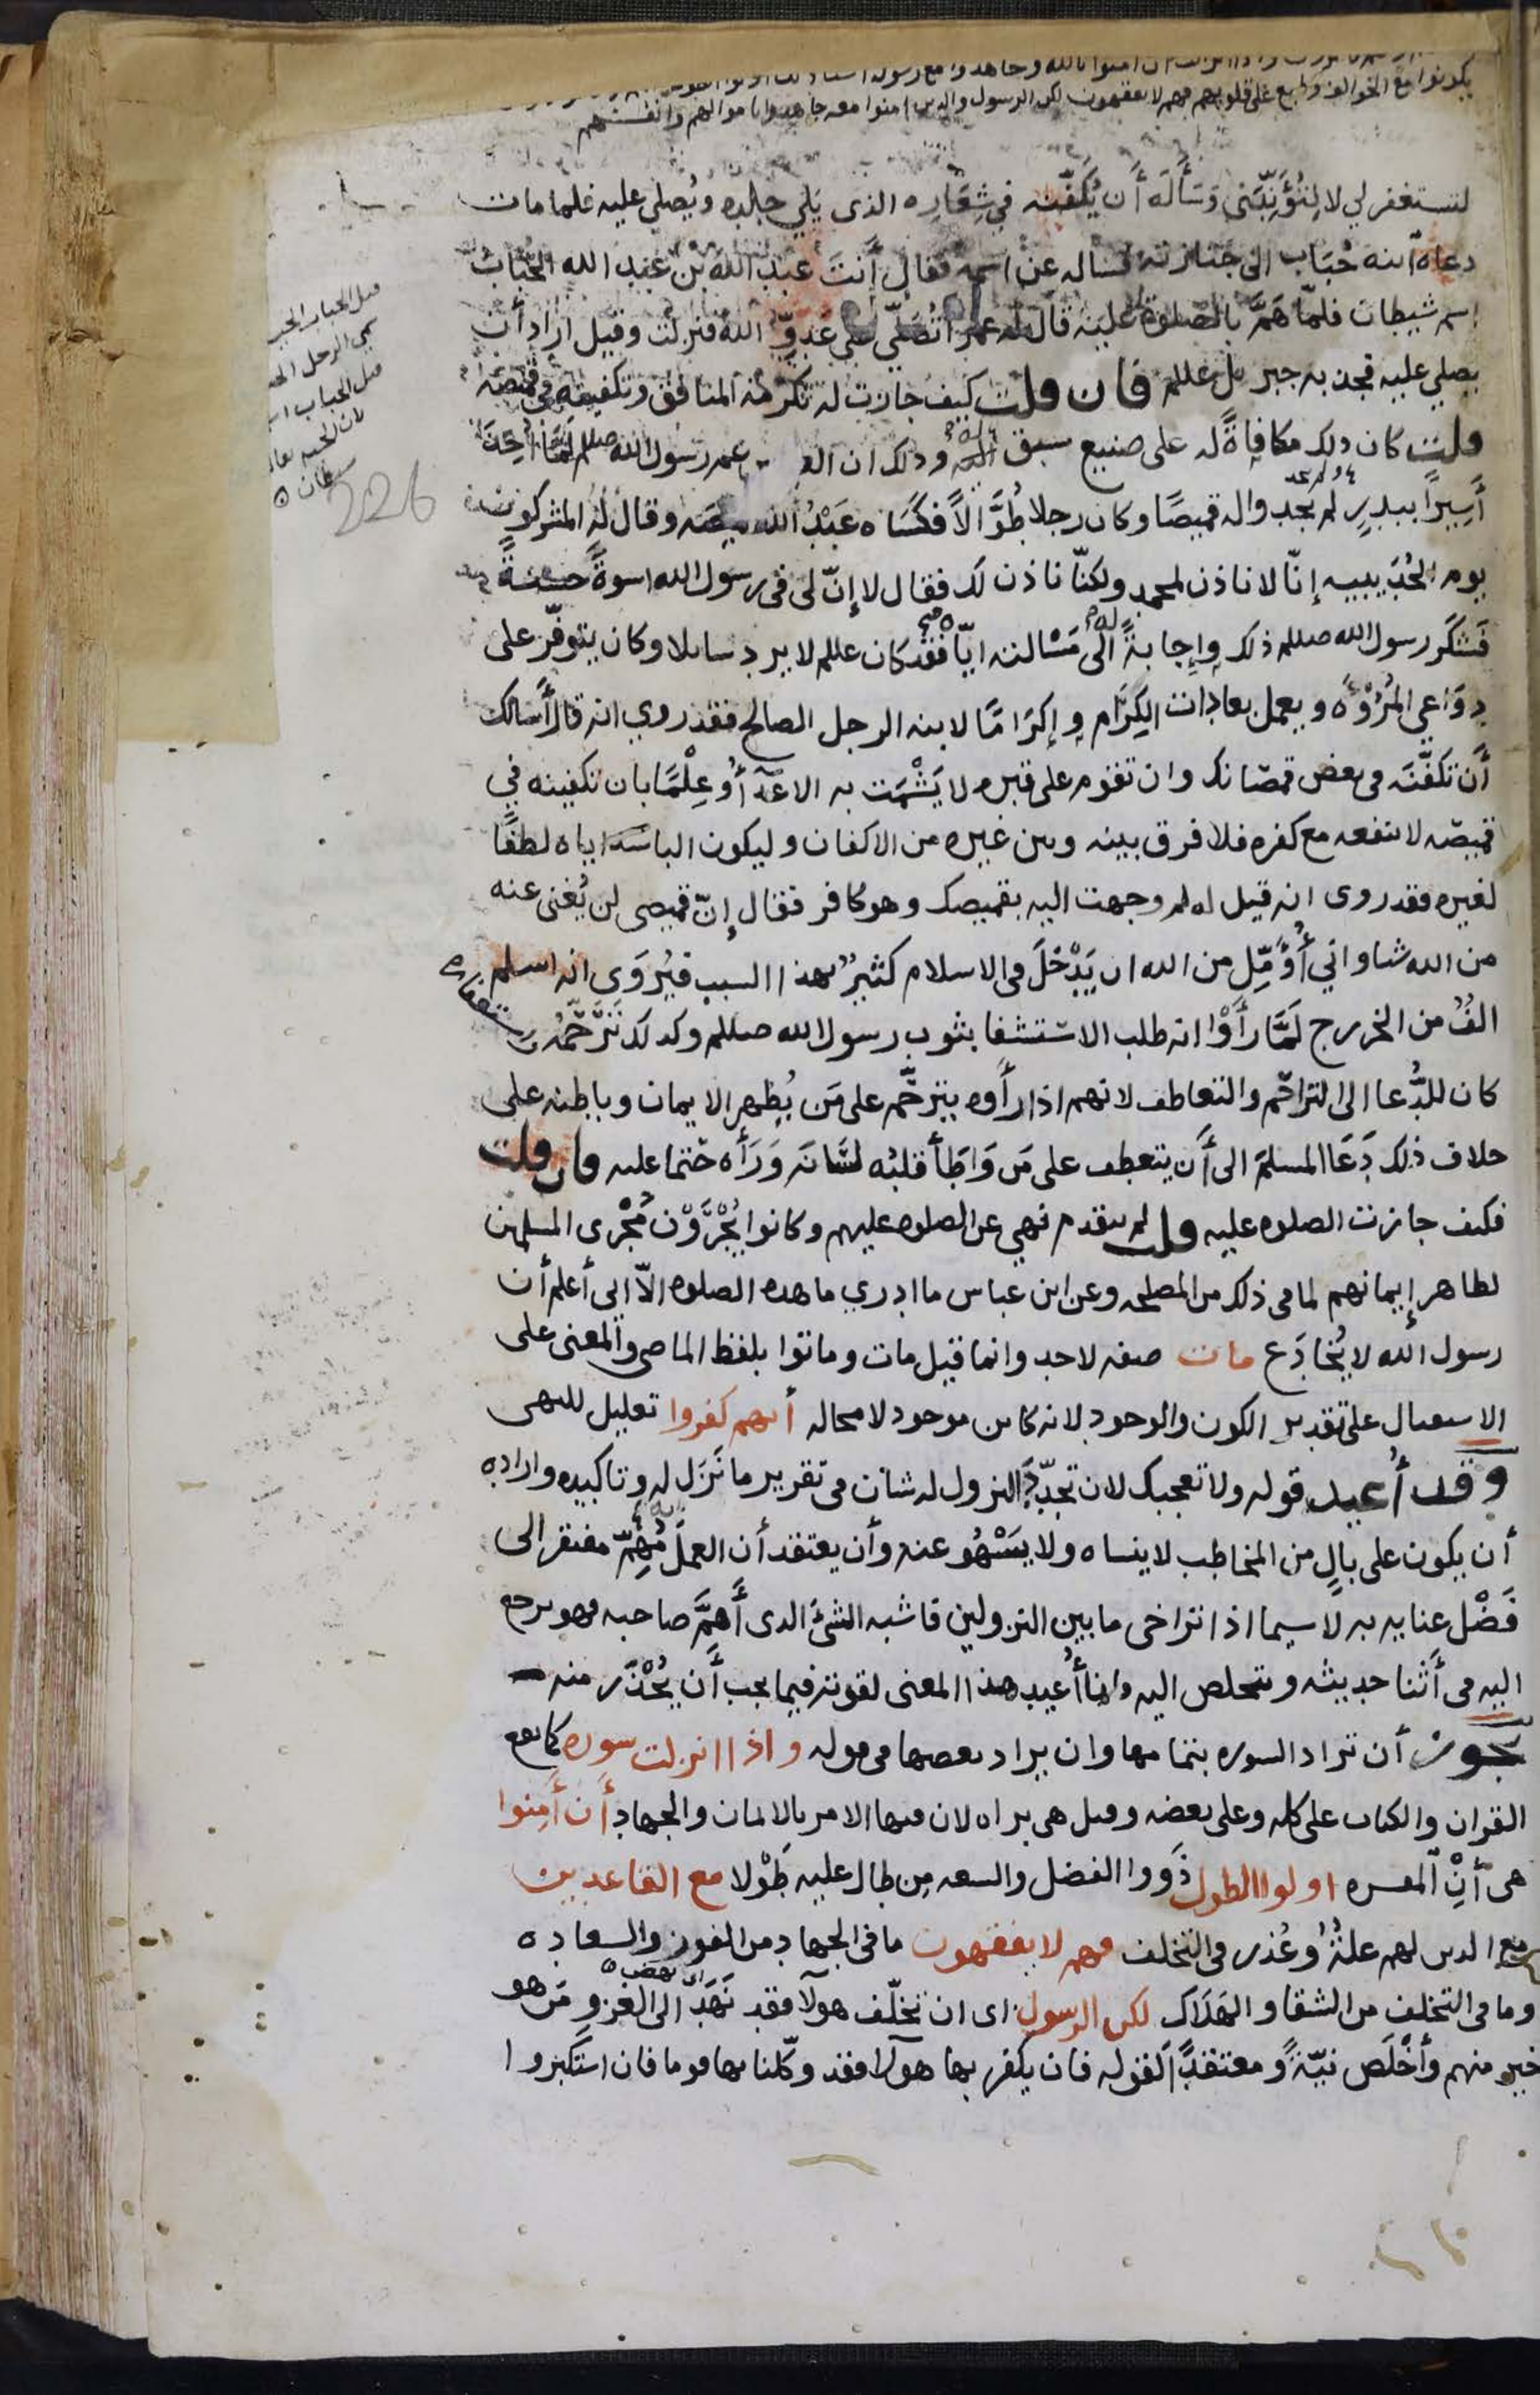 يكونوا مع الخوالف وطبع على قلوبهم فهم لا يفقهون لكن الرسول والذين امنوا معه جاهدوا باموالهم وانفسهم
لتستغفر لي لا لِتُؤَنِّبَني وَسَأَلَه أَن يُكَفِّنه في شِعَارِه الذى يَلي جلده ويُصلي عليه فلما مات
دعاه ابنه حُبَاب الى جنازته فساله عن اسمه فقال أَنتَ عبد الله بن عبد الله الحُبَاب
اسم شيطان فلمّا هَمَّ بالصلوة عليه قال له عمر أتُصَلّي على عَدوِّ الله فنزلت وقيل اراد أن
يصلي عليه فجذبه جبريل علىلم فان قلت كيف جازت له تكرمة المنافق وتكفينه في قميصه
قلت كان ذلك مكافاةً له على صنيع سبق له وذلك ان العباس عم رسول الله صللم لمّا أخِذَ
أسِيرًا ببدرٍ لم يجدوا له قميصًا وكان رجلا طُوَّالاً فكَسَاه عَبْدُ الله قميصه وقال له المشركون
يوم الحُدَيبيه إنّا لا ناذن لمحمد ولكنّا ناذن لك فقال لا إنّ لى فى رسول الله اسوةً حسنةً
فَشَكَر رسول الله صللم ذلك وإجابةً له الى مَسْالته ايّاه فقد كان علىلم لا يرد سايلا وكان يتوفّر على
دوَاعي المُرُوْءَه ويعمل بعادات الكِرَام وإكرَامًا لابنه الرجل الصالح فقد روي انه قال أَسالك
أَن تكفّنَه فى بعض قمصانك وان تقوم على قبره لا يَشْمَت به الاعدَآ أَو عِلْمًا بان تكفينه في
قميصه لا ينفعه مع كفره فلا فرق بينه وبين غيره من الاكفان وليكون الباسه اياه لطفًا
لغيره فقد روى انه قيل له لم وجهت اليه بقميصك وهو كافر فقال إنّ قميصى لن يُغنى عنه
من الله شيا واني أُؤَمِّل من الله ان يَدْخُلَ فى الاسلام كثيرٌ بهذا السبب فيُروَى انه اسلم
الفٌ من الخزرج لَمَّا رأَوْا انه طلب الاستشفا بثوب رسول الله صللم وكذلك تَرَحُّمُه واستغفاره
كان للدُّعا الى التراحُم والتعاطف لانهم اذا رأَوه يترحَّم على مَن يُظهر الايمان وباطنه على
خلاف ذلك دَعَا المسلمَ الى أَن يتعطف على مَن وَاطَأَ قلبُه لسَانَه وَرَأَه حتما عليه فان قلت
فكيف جازت الصلوه عليه قلت لم يتقدم نهي عن الصلوه عليهم وكانوا يُجْرَوْن مُجْرى المسلمين
لظاهر إيمانهم لما فى ذلك من المصلحه وعن ابن عباس ما ادري ما هذه الصلوه الّا انى أعلم أن
رسول الله لا يُخَادَع مات صفه لاحد وانما قيل مات وماتوا بلفظ الماضى والمعنى على
الاستقبال على تقدير الكون والوجود لانه كاين موجود لا محاله أنهم كفروا تعليل للنهى
وقد أُعيد قوله ولا تعجبك لان تجدّد النزول له شان فى تقرير ما نَزَل له وتاكيده واراده
أن يكون على بالٍ من المخاطب لا ينساه ولا يَسْهُو عنه وأن يعتقد أن العمل به مُهِمّ مفتقر الى
فَضْل عنايه به لا سيما اذا تراخى ما بين النزولين فاشبه الشئ الذى أهَمَّ صاحبه فهو يرجع
اليه فى أَثنا حديثه ويتخلص اليه وانما أُعيد هذا المعنى لقوته فيما يجب أن يُحْذَر منه
يجوز أن تراد السوره بتمامها وان يراد بعضها فى قوله واذا انزلت سوره كما يقع
القران والكتاب على كله وعلى بعضه وقيل هى براه لان فيها الامر بالايمان والجهاد أَن أَمِنوا
هى أَنْ المفسره اولوا الطول ذَووا الفضل والسعه مِن طال عليه طَوْلا مع القاعدين
مع الذين لهم علةٌ وعُذر فى التخلف فهم لا يفقهون ما فى الجهاد من الفوز والسعاده
وما فى التخلف من الشقا والهَلَاك لكن الرسول اى ان تخلّف هولآ فقد نَهَدَ الى الغزو مَن هو
خير منهم وأَخْلَص نيّةً ومعتقدًا كقوله فان يكفر بها هولآ فقد وكّلنا بها قوما فان استكبروا
226